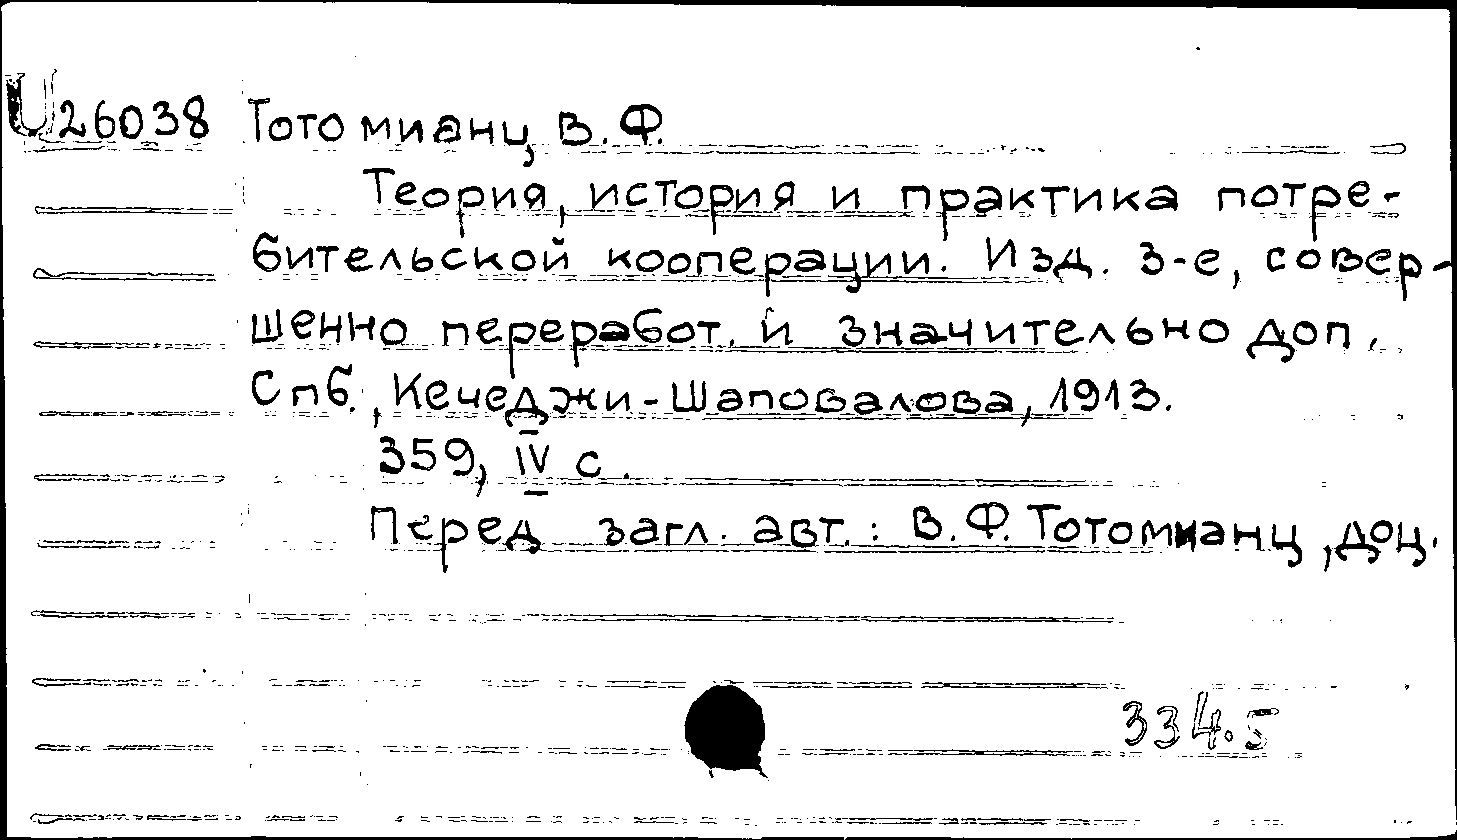 U26038 Тотомианц, В.Ф.
Теория, история и практика потре-
бительской кооперации. Изд. 3-е, совер-
шенно переработ. и значительно доп.
Спб., Кечеджи-Шаповалова, 1913.
359, IV с.
Перед загл. авт.: В.Ф. Тотомианц, доц.
334.5